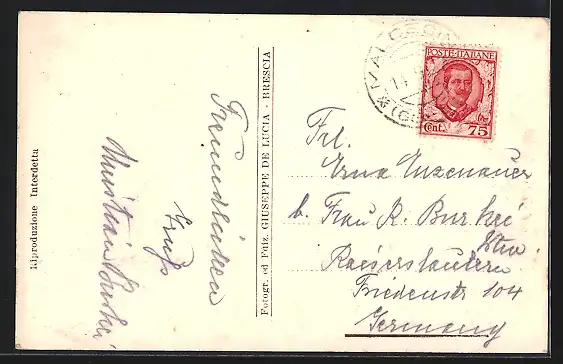 Riproduzione Interdetta
Freundlichen
Gruß
Fotogr. ed Ediz. GIUSEPPE DE LUCIA - BRESCIA
MALCESINE
POSTE ITALIANE
Cent. 75
Frl.
Erna Enzenauer
b. Frau K. Burkei
Kaiserslautern
Friedenstr 104
Germany